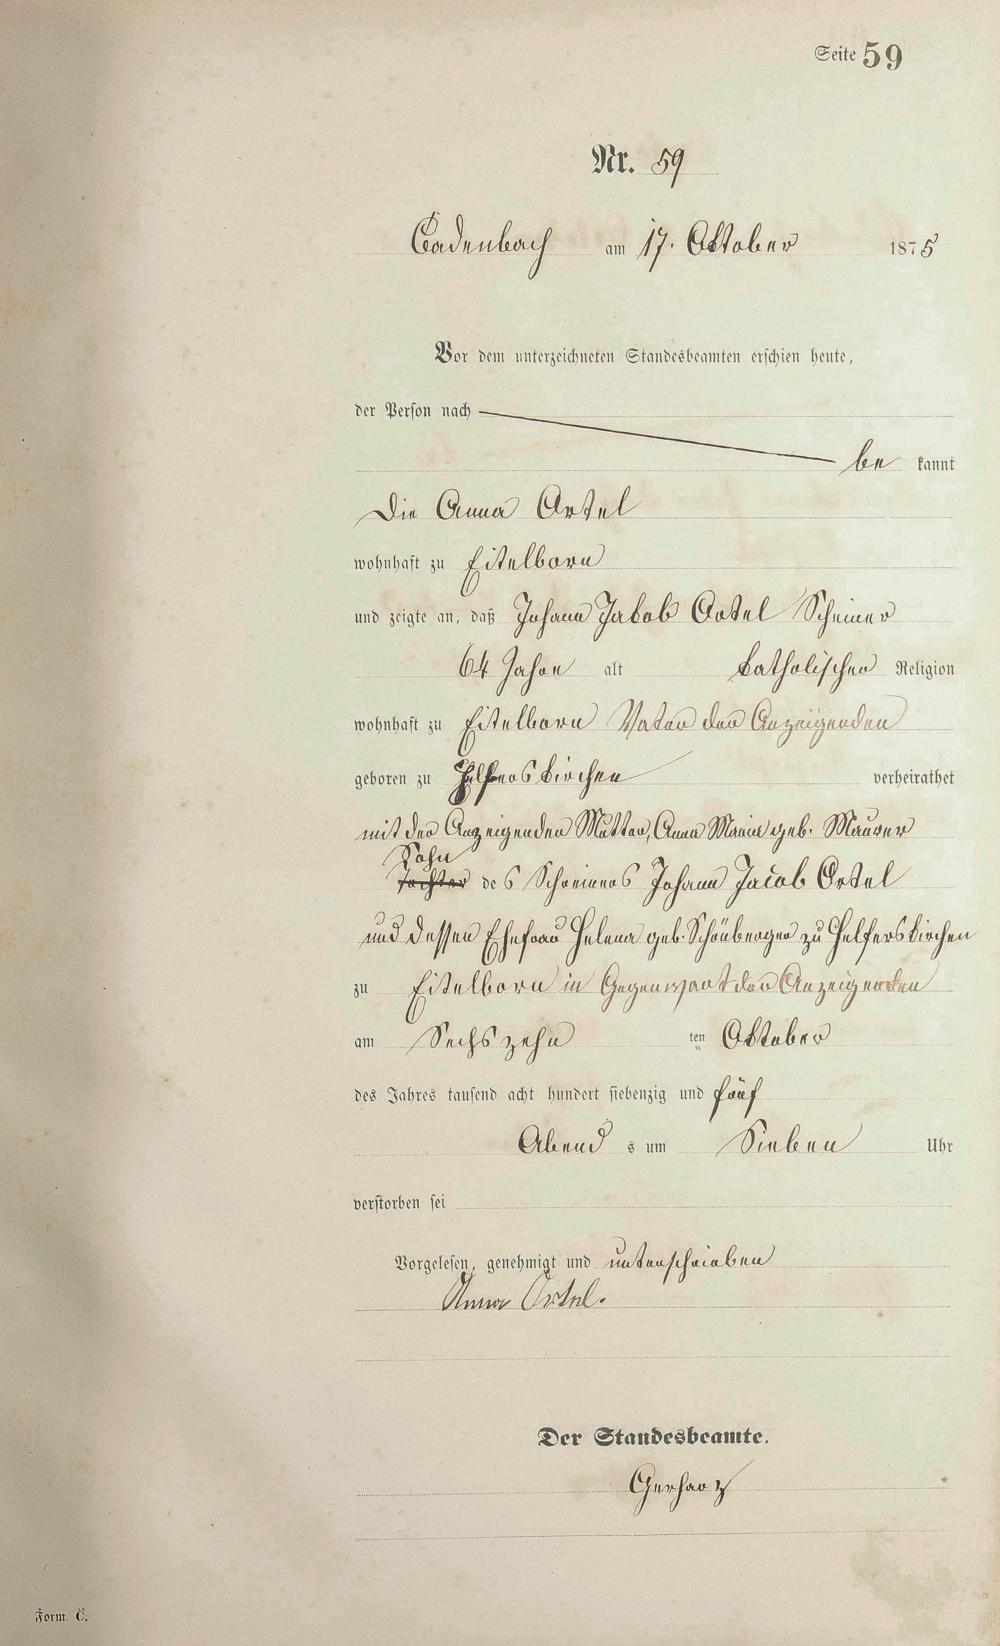 Seite 59
Nr. 59
Cadenbach am 17. Oktober 1875
Vor dem unterzeichneten Standesbeamten erschien heute,
der Person nach
be kannt
Die Anna Ortel
wohnhaft zu Eitelborn
und zeigte an, daß Johann Jakob Ortel Schreiner
64 Jahre alt katholischer Religion
wohnhaft zu Eitelborn Vater der Anzeigenden
geboren zu Helferskirchen verheirathet
mit der Anzeigenden Mutter, Anna Maria geb. Maurer
Sohn
Tochter des Schreiners Johann Jacob Ortel
und dessen Ehefrau Helena geb. Schönberger zu Helferskirchen
zu Eitelborn in Gegenwart der Anzeigenden
am Sechszehn ten Oktober
des Jahres tausend acht hundert siebenzig und fünf
Abend s um Sieben Uhr
verstorben sei
Vorgelesen, genehmigt und unterschrieben
Anna Ortel.
Der Standesbeamte.
Gerharz
Form. C.